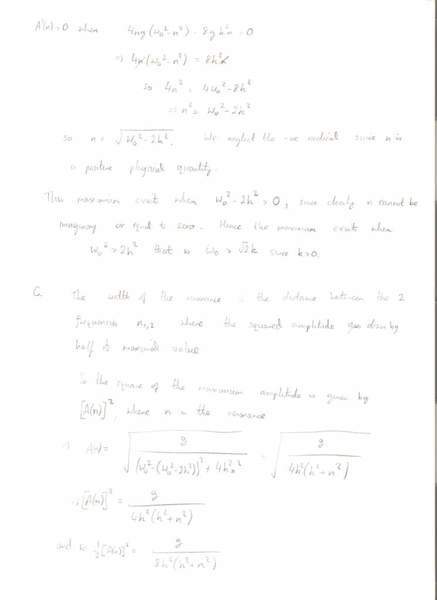 A'(n) = 0 when 4ng(ω₀² - n²) - 8gh²n = 0
⇒ 4n(ω₀² - n²) = 8h²n
so 4n² = 4ω₀² - 8h²
⇒ n² = ω₀² - 2h²
so n = √(ω₀² - 2h²). We neglect the -ve since n is
a positive physical quantity.
This maximum exists when ω₀² - 2h² > 0, since clearly n cannot be
imaginary or equal to zero. Hence the maximum exists when
ω₀² > 2h² that is ω₀ > √2h since h>0.
C. The width of the resonance is the distance between the 2
frequencies n₁,₂ where the squared amplitude goes down by
half its value
So the square of the maximum amplitude is given by
[A(n)]², where n is the resonance
A(n) = g / √((ω₀² - (ω₀² - 2h²))² + 4h²n²) = √(g / 4h²(h² + n²))
[A(n)]² = g / 4h²(h² + n²)
and so ½[A(n)]² = g / 8h²(h² + n²)